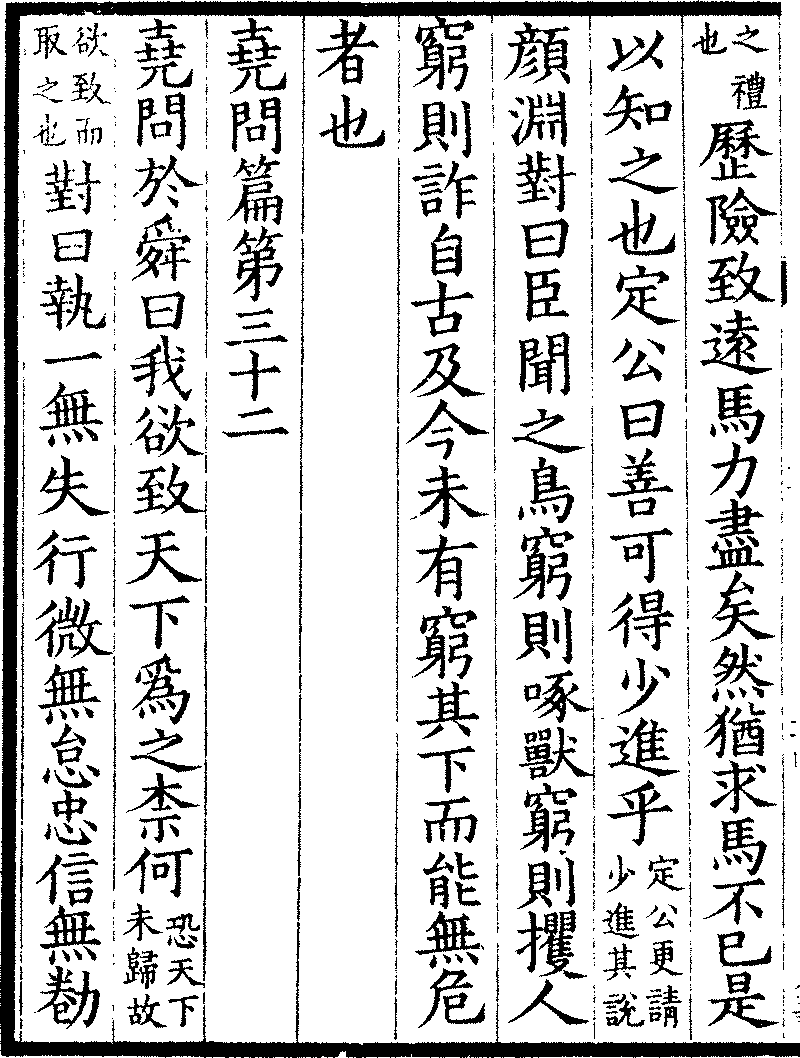 之禮也歷險致遠馬力盡矣然猶求馬不已是
以知之也定公曰善可得少進乎定公更請少進其說
顔淵對曰臣聞之鳥窮則啄獸窮則攫人
窮則詐自古及今未有窮其下而能無危
者也
堯問篇第三十二
堯問於舜曰我欲致天下爲之柰何恐天下未歸故
欲致而取之也對曰執一無失行微無怠忠信無勌